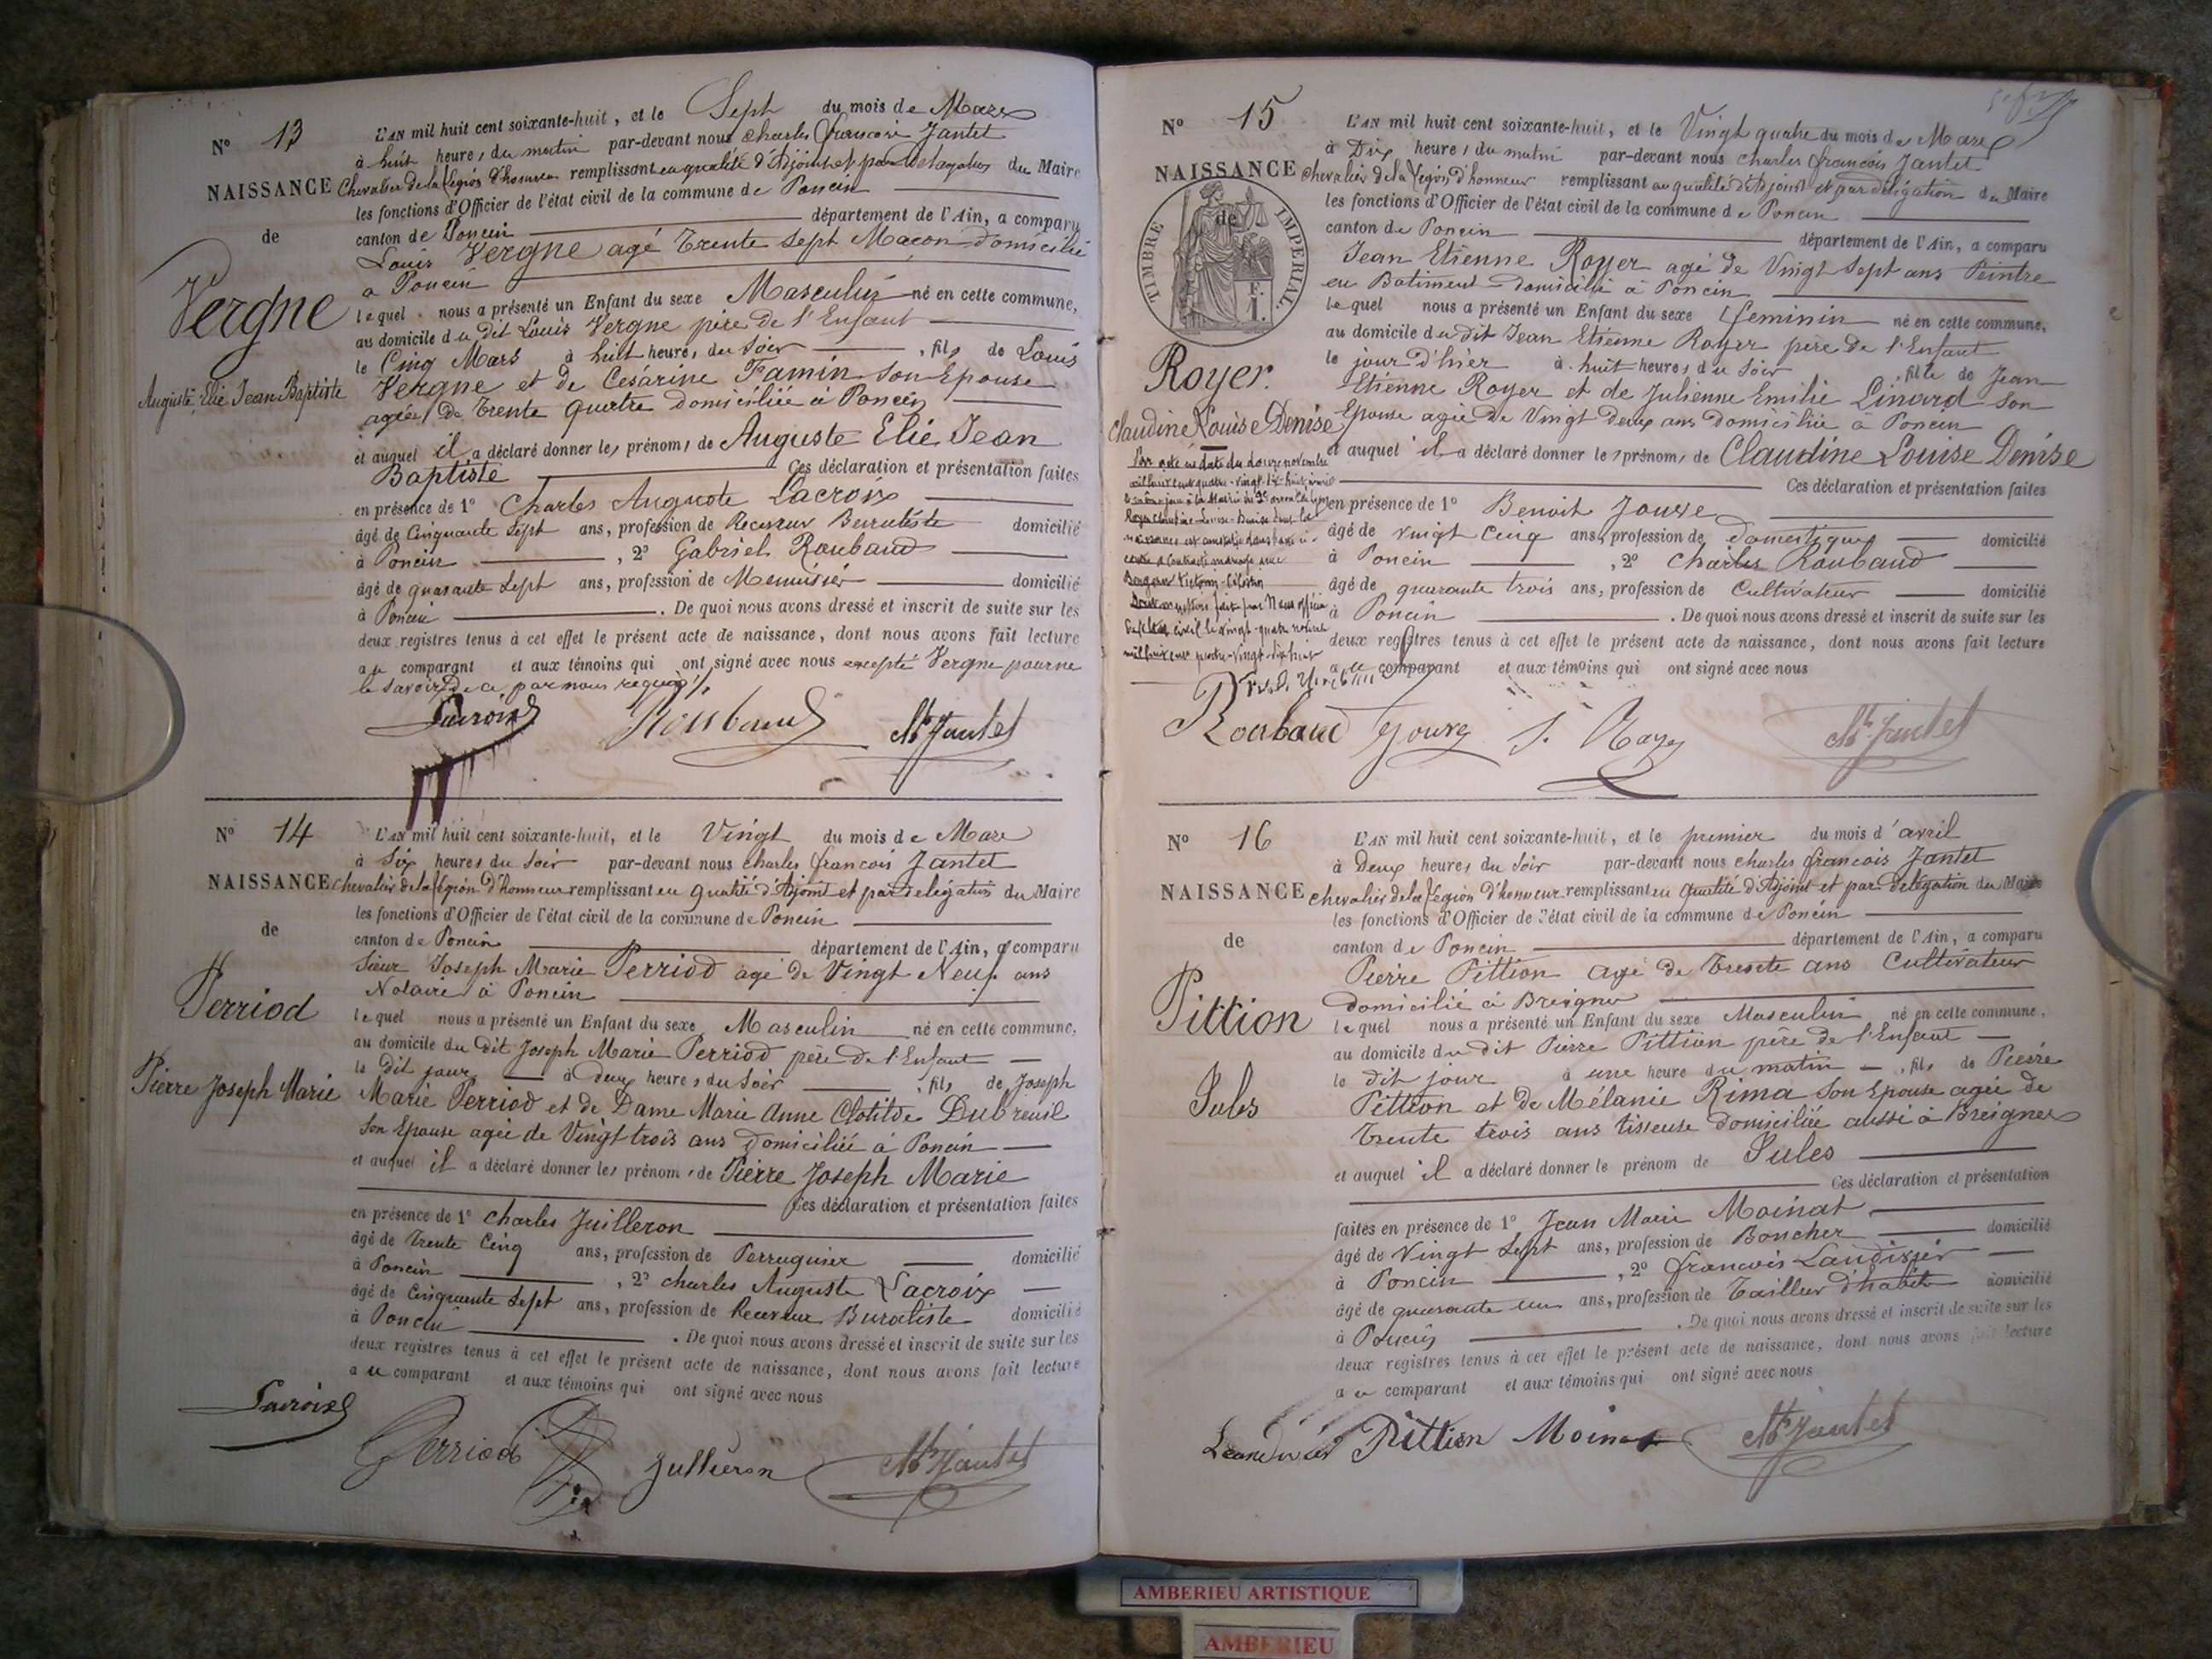 Nº 13
NAISSANCE
de
Vergne
Auguste, Elie Jean Baptiste
L'AN mil huit cent soixante-huit, et le Sept du mois de Mars
à huit heures du matin par-devant nous Charles François Jantet
Chevalier de la Légion d'honneur remplissant en qualité d'Adjoint et par délégation du Maire
les fonctions d'Officier de l'état civil de la commune de Poncin
canton de Poncin département de l'Ain, a comparu
Louis Vergne agé Trente Sept Macon domicilié
a Poncin
lequel nous a présenté un Enfant du sexe Masculin né en cette commune,
au domicile du dit Louis Vergne père de l'Enfant
le Cinq Mars à huit heures du Soir, fils de Louis
Vergne et de Césarine Famin son Epouse
agée de Trente quatre domiciliée à Poncin
et auquel il a déclaré donner les prénoms de Auguste Elie Jean
Baptiste Ces déclaration et présentation faites
en présence de 1º Charles Auguste Lacroix
âgé de Cinquante Sept ans, profession de Receveur Buraliste domicilié
à Poncin, 2º Gabriel Roubaud
âgé de quarante Sept ans, profession de Menuisier domicilié
à Poncin. De quoi nous avons dressé et inscrit de suite sur les
deux registres tenus à cet effet le présent acte de naissance, dont nous avons fait lecture
au comparant et aux témoins qui ont signé avec nous excepté Vergne pour ne
le savoir De ce par nous requis
Lacroix Roubaud Jantet
Nº 14
NAISSANCE
de
Perriod
Pierre Joseph Marie
L'AN mil huit cent soixante-huit, et le Vingt du mois de Mars
à Six heures du Soir par-devant nous Charles François Jantet
Chevalier de la Légion d'honneur remplissant en qualité d'Adjoint et par délégation du Maire
les fonctions d'Officier de l'état civil de la commune de Poncin
canton de Poncin département de l'Ain, a comparu
Sieur Joseph Marie Perriod agé de Vingt Neuf ans
Notaire à Poncin
lequel nous a présenté un Enfant du sexe Masculin né en cette commune,
au domicile du dit Joseph Marie Perriod père de l'Enfant
le dit jour à Deux heures du Soir, fils de Joseph
Marie Perriod et de Dame Marie Anne Clotilde Dubreuil
Son Epouse agée de Vingt trois ans Domiciliée à Poncin
et auquel il a déclaré donner les prénoms de Pierre Joseph Marie
Ces déclaration et présentation faites
en présence de 1º Charles Juilleron
âgé de Trente Cinq ans, profession de Perruquier domicilié
à Poncin, 2º Charles Auguste Lacroix
âgé de Cinquante Sept ans, profession de Receveur Buraliste domicilié
à Poncin. De quoi nous avons dressé et inscrit de suite sur les
deux registres tenus à cet effet le présent acte de naissance, dont nous avons fait lecture
au comparant et aux témoins qui ont signé avec nous
Lacroix Perriod Jullieron Jantet
Nº 15
NAISSANCE
de
TIMBRE IMPÉRIAL.
Royer.
Claudine Louise Denise
Par acte en date du douze novembre
le même jour à la Mairie du
Royer Claudine-Louise-Denise dont la
naissance est constatée dans l'acte ci-
contre a contracté mariage avec
L'AN mil huit cent soixante-huit, et le Vingt quatre du mois de Mars
à Dix heures du matin par-devant nous Charles François Jantet
Chevalier de la Légion d'honneur remplissant en qualité d'Adjoint et par délégation du Maire
les fonctions d'Officier de l'état civil de la commune de Poncin
canton de Poncin département de l'Ain, a comparu
Jean Etienne Royer agé de Vingt Sept ans Peintre
en Batiment domicilié à Poncin
lequel nous a présenté un Enfant du sexe féminin né en cette commune,
au domicile du dit Jean Etienne Royer père de l'Enfant
le jour d'hier à huit heures du Soir, fille de Jean
Etienne Royer et de Julienne Emilie Linard Son
Epouse agée de Vingt Deux ans domiciliée à Poncin
et auquel il a déclaré donner les prénoms de Claudine Louise Denise
Ces déclaration et présentation faites
en présence de 1º Benoit Jouve
âgé de Vingt Cinq ans, profession de Domestique domicilié
à Poncin, 2º Charles Roubaud
âgé de quarante trois ans, profession de Cultivateur domicilié
à Poncin. De quoi nous avons dressé et inscrit de suite sur les
deux registres tenus à cet effet le présent acte de naissance, dont nous avons fait lecture
au comparant et aux témoins qui ont signé avec nous
Roubaud Jouve Royer Jantet
Nº 16
NAISSANCE
de
Pittion
Jules
L'AN mil huit cent soixante-huit, et le premier du mois d'avril
à Deux heures du Soir par-devant nous Charles François Jantet
Chevalier de la Légion d'honneur remplissant en qualité d'Adjoint et par délégation du Maire
les fonctions d'Officier de l'état civil de la commune de Poncin
canton de Poncin département de l'Ain, a comparu
Pierre Pittion agé de Trente ans Cultivateur
domicilié à Breignes
lequel nous a présenté un Enfant du sexe Masculin né en cette commune,
au domicile du dit Pierre Pittion père de l'Enfant
le dit jour à une heure du matin, fils de Pierre
Pittion et de Mélanie Rima Son Epouse agée de
Trente trois ans tisseuse domiciliée aussi à Breignes
et auquel il a déclaré donner le prénom de Jules
Ces déclaration et présentation
faites en présence de 1º Jean Marie Moinat
âgé de Vingt Sept ans, profession de Boucher domicilié
à Poncin, 2º François Landisier
âgé de quarante un ans, profession de Tailleur d'habits domicilié
à Poncin. De quoi nous avons dressé et inscrit de suite sur les
deux registres tenus à cet effet le présent acte de naissance, dont nous avons fait lecture
au comparant et aux témoins qui ont signé avec nous
Pittion Moinat Jantet
AMBERIEU ARTISTIQUE
AMBERIEU